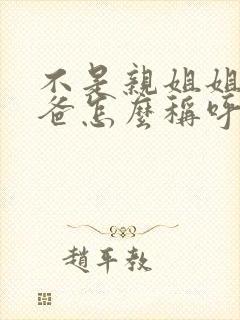 不是親姐姐
爸怎麼稱呼
趙平教